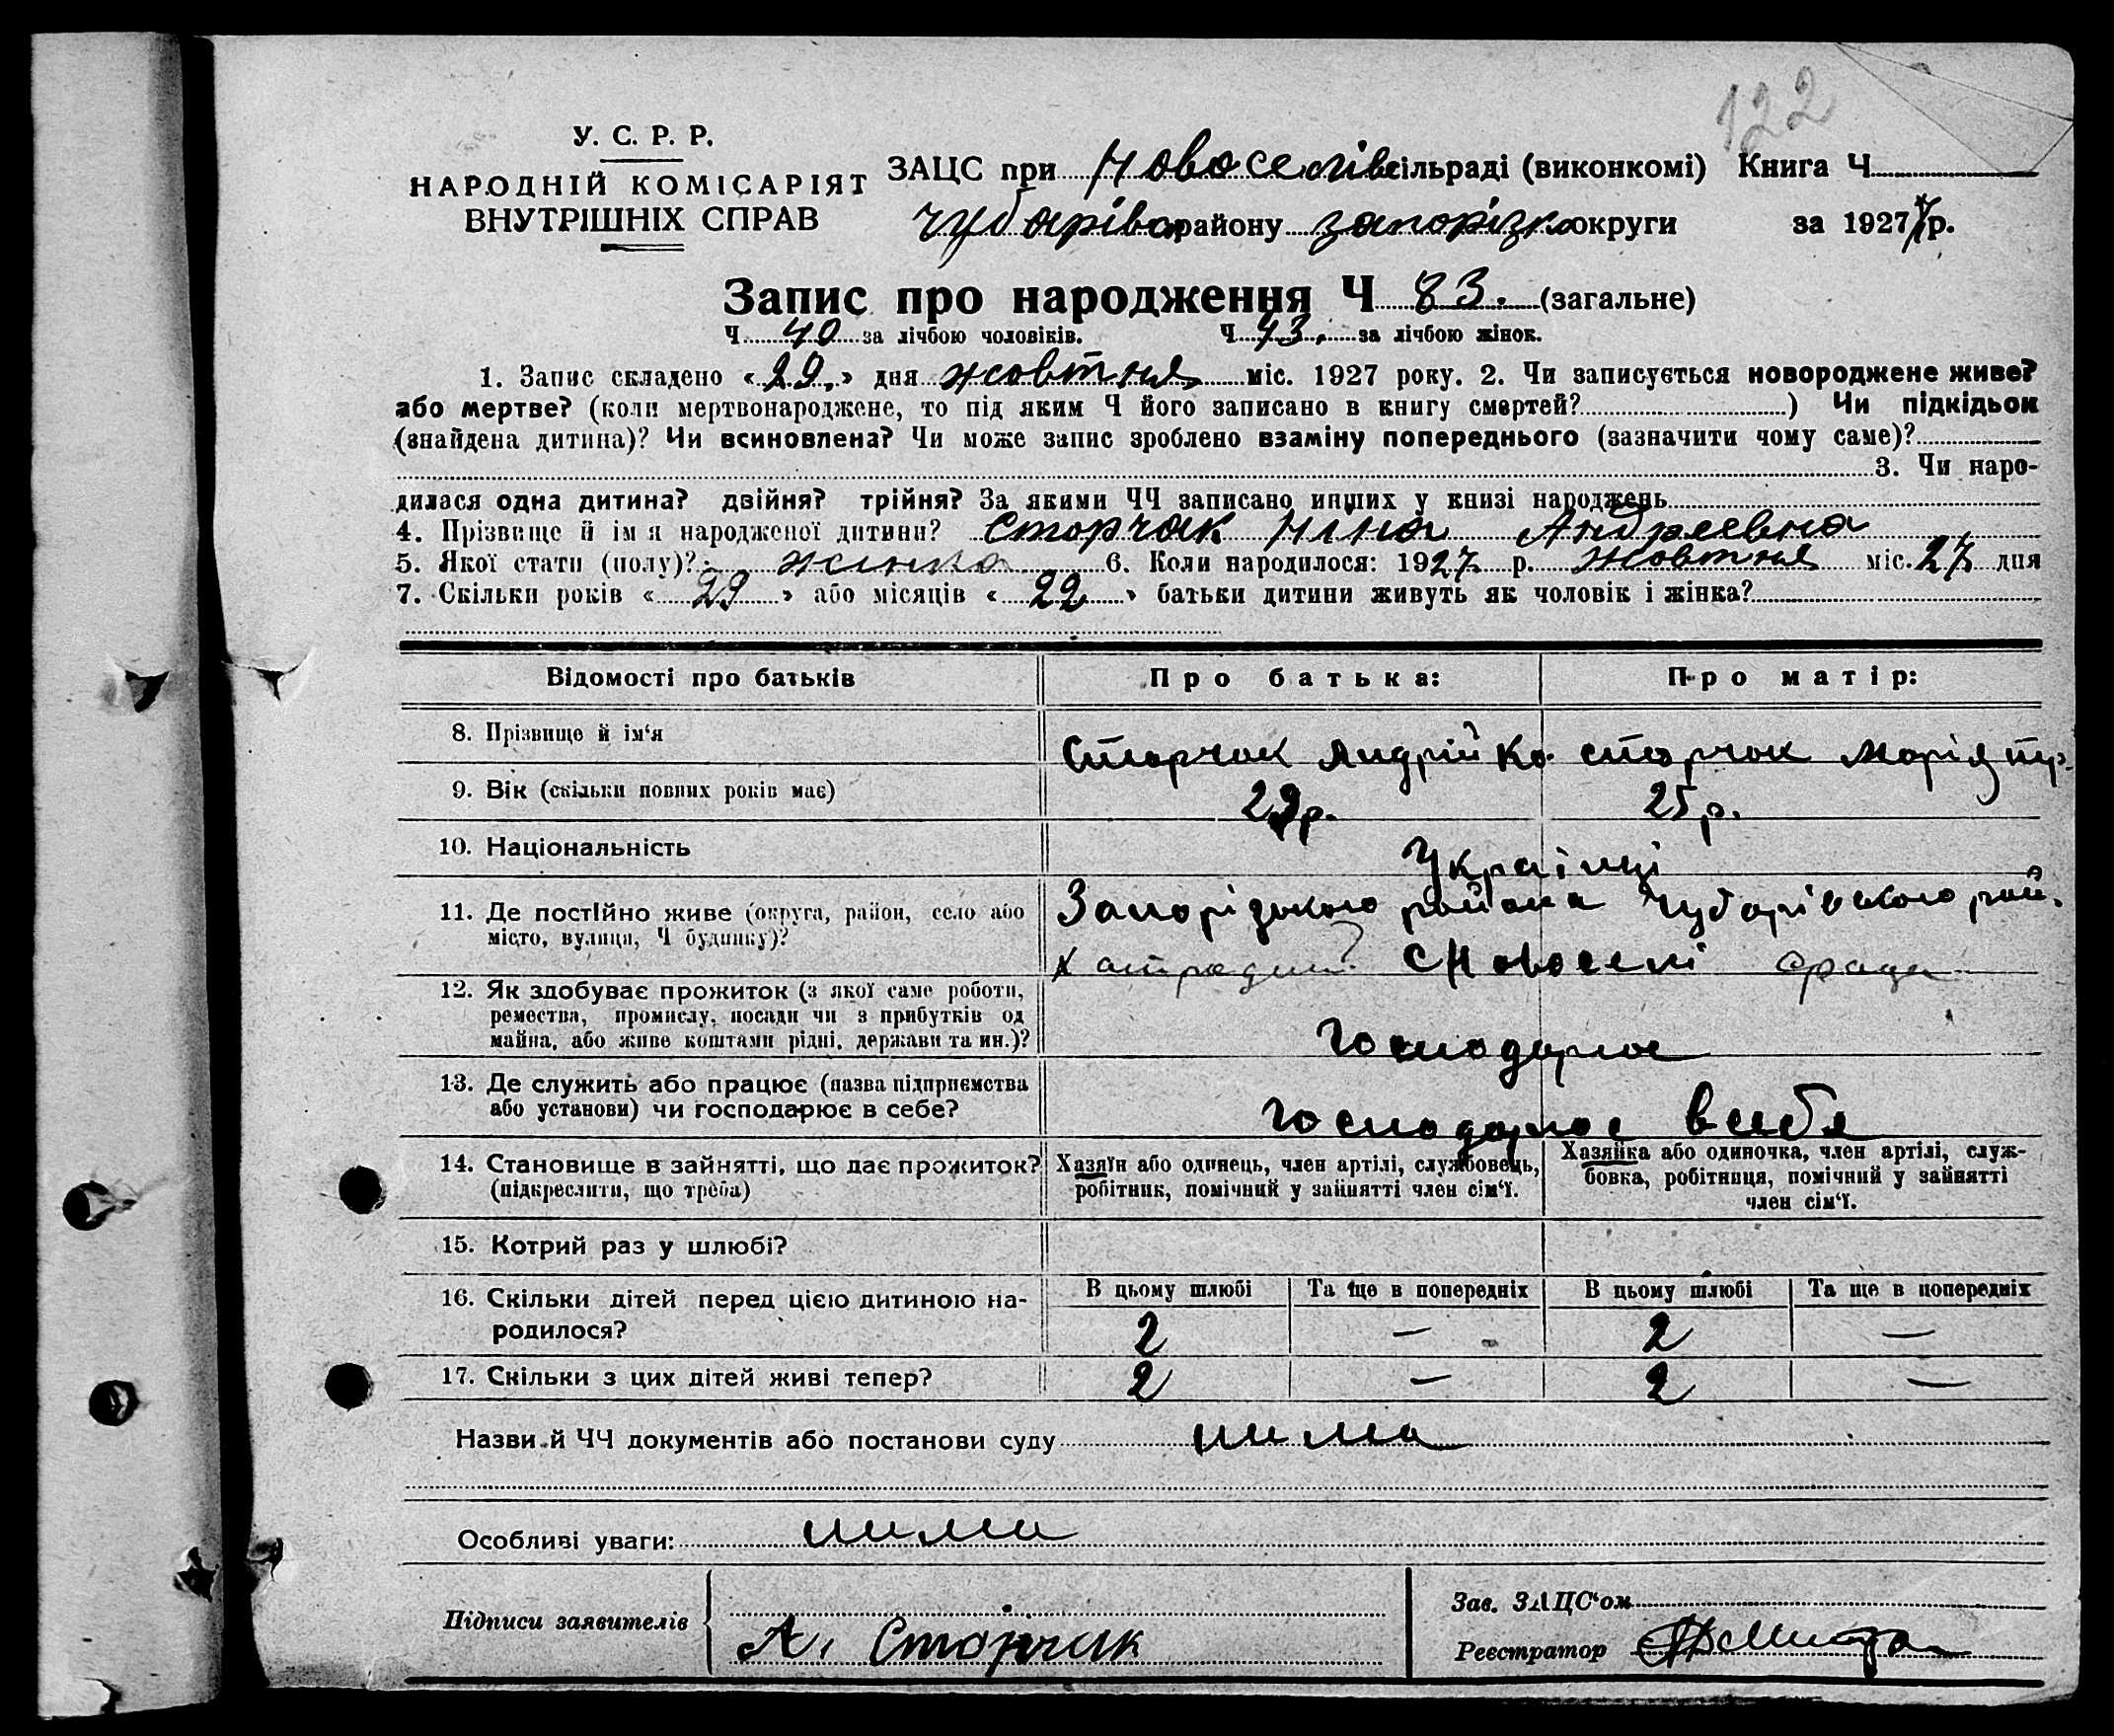 122
У. С. Р. Р.
НАРОДНІЙ КОМІСАРІЯТ
ВНУТРІШНІХ СПРАВ
ЗАЦС при Новоселів сільраді (виконкомі) Книга Ч
Чубарівск району Запорізько округи за 1927 р.
Запис про народження Ч 83. (загальне)
Ч 40 за лічбою чоловіків. Ч 43. за лічбою жінок.
1. Запис складено «29.» дня жовтня міс. 1927 року. 2. Чи записується новороджене живе?
або мертве? (коли мертвонароджене, то під яким Ч його записано в книгу смертей? ) Чи підкідьок
(знайдена дитина)? Чи всиновлена? Чи може запис зроблено взаміну попереднього (зазначити чому саме)?
3. Чи наро-
дилася одна дитина? двійня? трійня? За якими ЧЧ записано инших у книзі народжень
4. Прізвище й ім я народженої дитини? Сторчак Ніна Андреевна
5. Якої стати (полу)? жінка 6. Коли народилося: 1927 р. жовтня міс. 27 дня
7. Скільки років « » або місяців « » батьки дитини живуть як чоловік і жінка?
Відомості про батьків Про батька: Про матір:
8. Прізвище й ім‘я Сторчак Андрій Ко. Сторчак Марія
9. Вік (скільки повних років має) 29 р. 25 р.
10. Національність Українці
11. Де постійно живе (округа, район, село або Запорізького района Чубарівського рай.
місто, вулиця, Ч будинку)? с Новоселі
12. Як здобуває прожиток (з якої саме роботи,
ремества, промислу, посади чи з прибутків од
майна, або живе коштами рідні, держави та ин.)? господарює
13. Де служить або працює (назва підприємства
або установи) чи господарює в себе? господарює в себя
14. Становище в зайнятті, що дає прожиток? Хазяїн або одинець, член артілі, службовець, Хазяйка або одиночка, член артілі, служ-
(підкреслити, що треба) робітник, помічний у зайнятті член сім‘ї. бовка, робітниця, помічний у зайнятті
член сім‘ї.
15. Котрий раз у шлюбі?
16. Скільки дітей перед цією дитиною на- В цьому шлюбі Та ще в попередніх В цьому шлюбі Та ще в попередніх
родилося? 2 — 2 —
17. Скільки з цих дітей живі тепер? 2 — 2 —
Назви й ЧЧ документів або постанови суду нима
Особливі уваги: нима
Підписи заявителів
А. Сторчак
Зав. ЗАЦС‘ом
Реєстратор